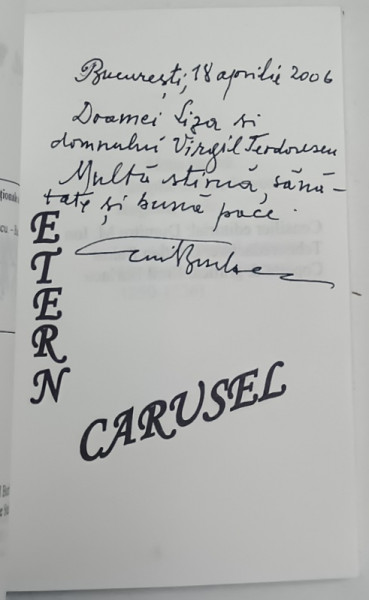 București, 18 aprilie 2006
Doamnei Liza si
domnului Virgil Teodorescu
Multă stimă, sănă-
tate și bună pace.
ETERN
CARUSEL